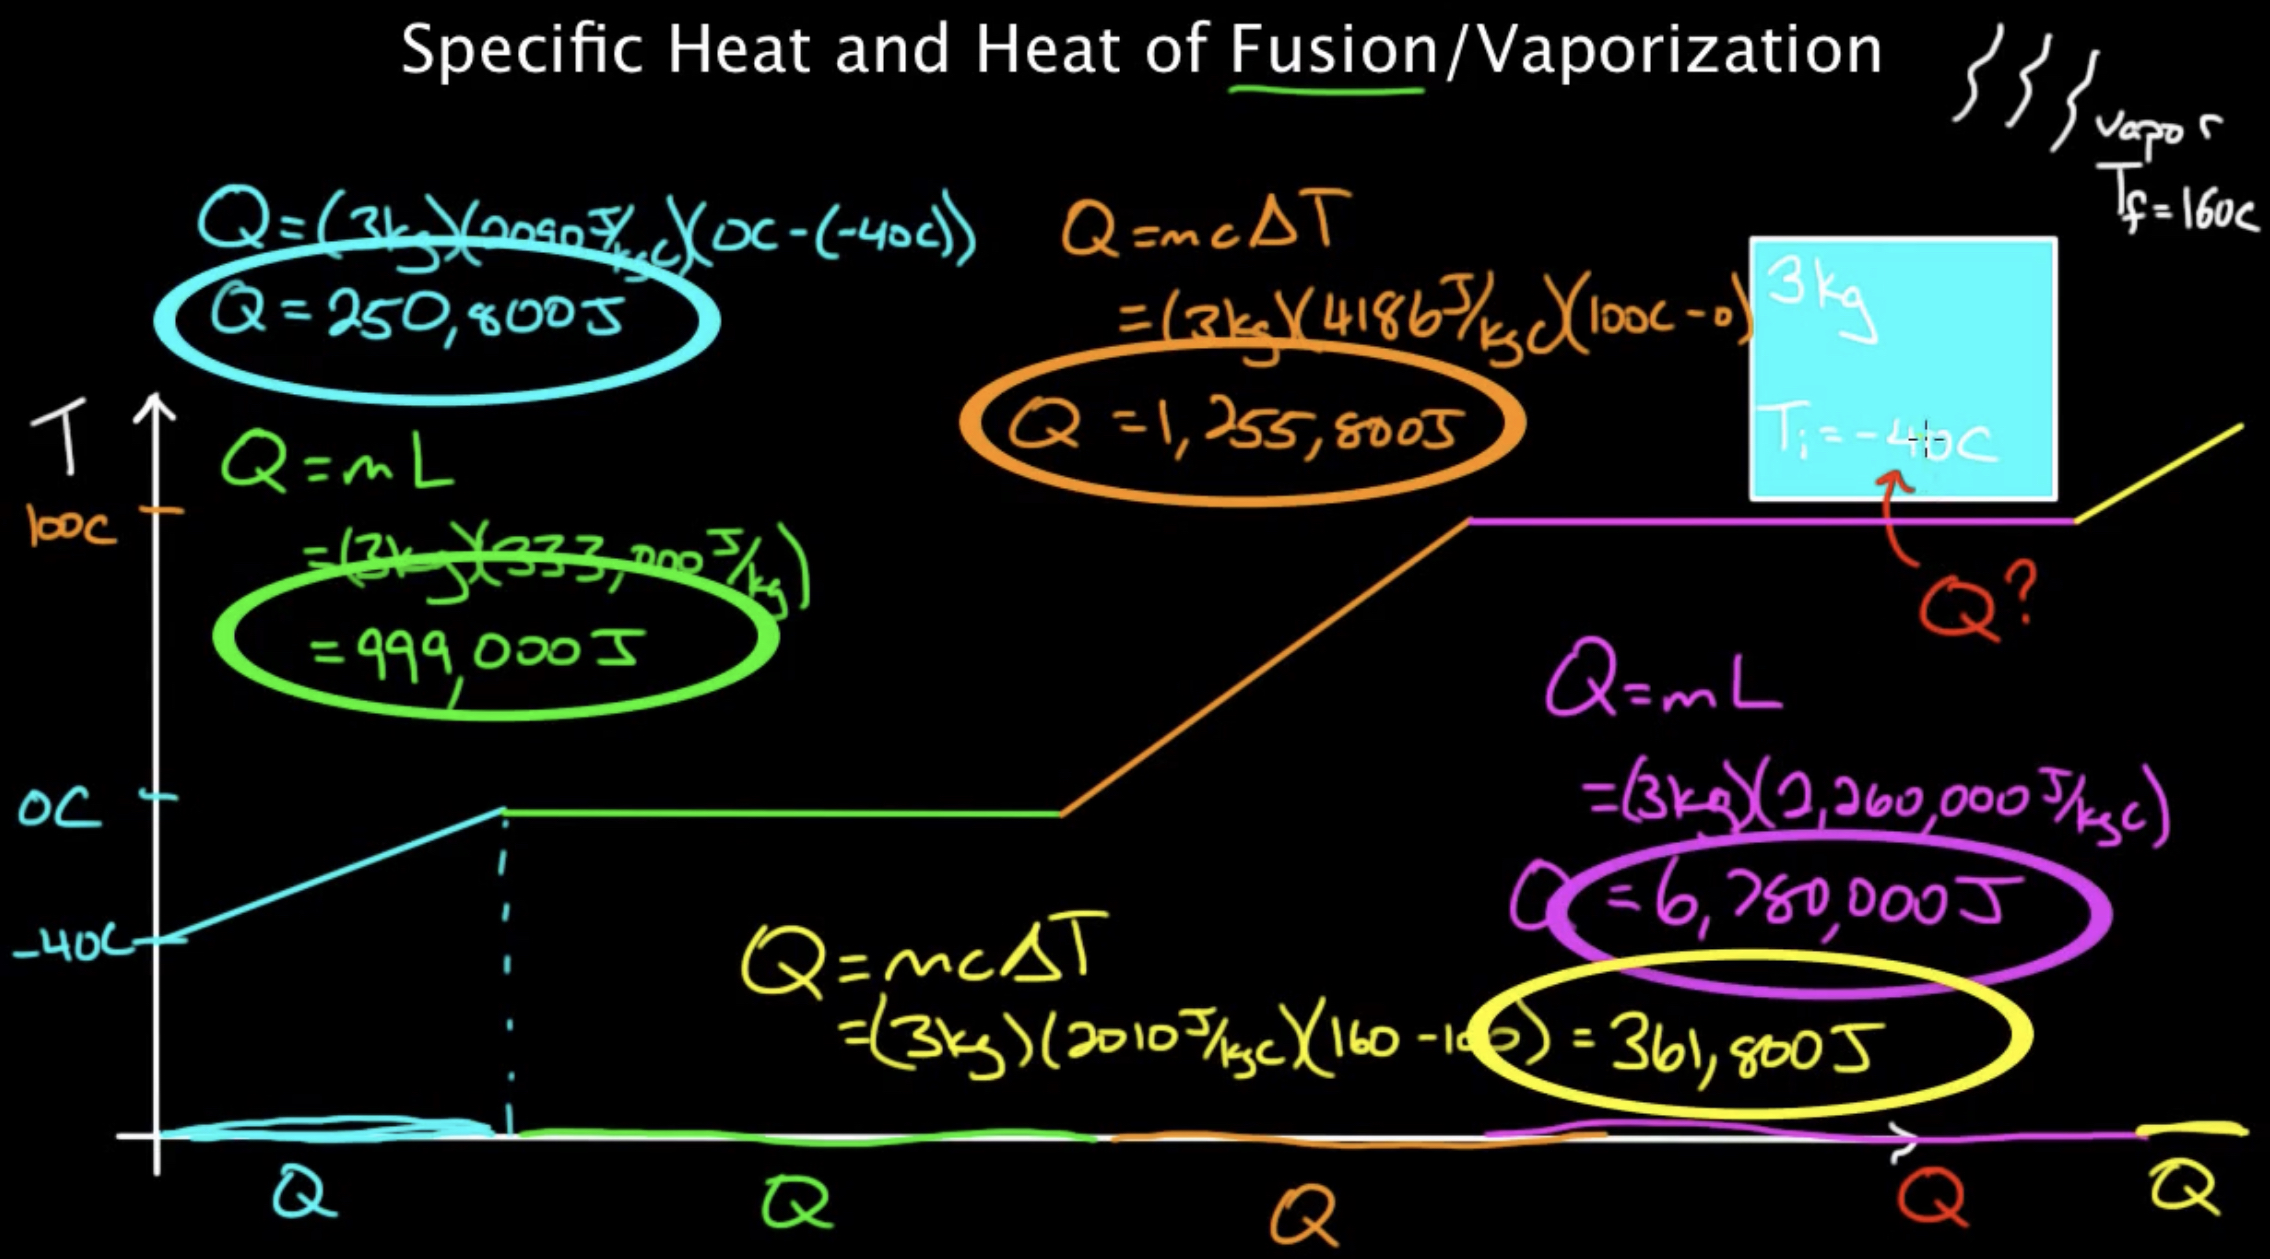 Specific Heat and Heat of Fusion/Vaporization
vapor
Tf=160C
Q=(3kg)(2090J/kgC)(0C-(-40C))
Q=250,800J
Q=mcΔT
=(3kg)(4186J/kgC)(100C-0)
Q=1,255,800J
3kg
Ti=-40C
Q?
T
100C
0C
-40C
Q=mL
=(3kg)(333,000J/kg)
=999,000J
Q=mL
=(3kg)(2,260,000J/kgC)
Q=6,780,000J
Q=mcΔT
=(3kg)(2010J/kgC)(160-100)=361,800J
Q Q Q Q Q